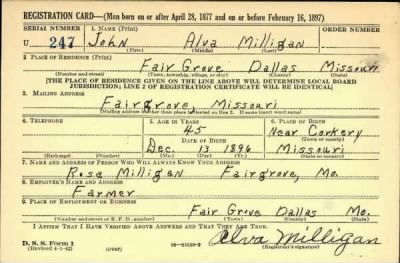 REGISTRATION CARD—(Men born on or after April 28, 1877 and on or before February 16, 1897)
SERIAL NUMBER 1. NAME (Print) ORDER NUMBER
U 247 John Alva Milligan
(First) (Middle) (Last)
2. PLACE OF RESIDENCE (Print)
Fair Grove Dallas Missouri
(Number and street) (Town, township, village, or city) (County) (State)
[THE PLACE OF RESIDENCE GIVEN ON THE LINE ABOVE WILL DETERMINE LOCAL BOARD
JURISDICTION; LINE 2 OF REGISTRATION CERTIFICATE WILL BE IDENTICAL]
3. MAILING ADDRESS
Fairgrove, Missouri
(Mailing address if other than place indicated on line 2. If same insert word same)
4. TELEPHONE 5. AGE IN YEARS 6. PLACE OF BIRTH
45 Near Corkery
DATE OF BIRTH (Town or county)
Dec. 13 1896 Missouri
(Exchange) (Number) (Mo.) (Day) (Yr.) (State or country)
7. NAME AND ADDRESS OF PERSON WHO WILL ALWAYS KNOW YOUR ADDRESS
Rosa Milligan Fairgrove, Mo.
8. EMPLOYER'S NAME AND ADDRESS
Farmer
9. PLACE OF EMPLOYMENT OR BUSINESS
Fair Grove Dallas Mo.
(Number and street or R. F. D. number) (Town) (County) (State)
I AFFIRM THAT I HAVE VERIFIED ABOVE ANSWERS AND THAT THEY ARE TRUE.
D. S. S. Form 1
(Revised 4-1-42) (over) Alva Milligan
(Registrant's signature)